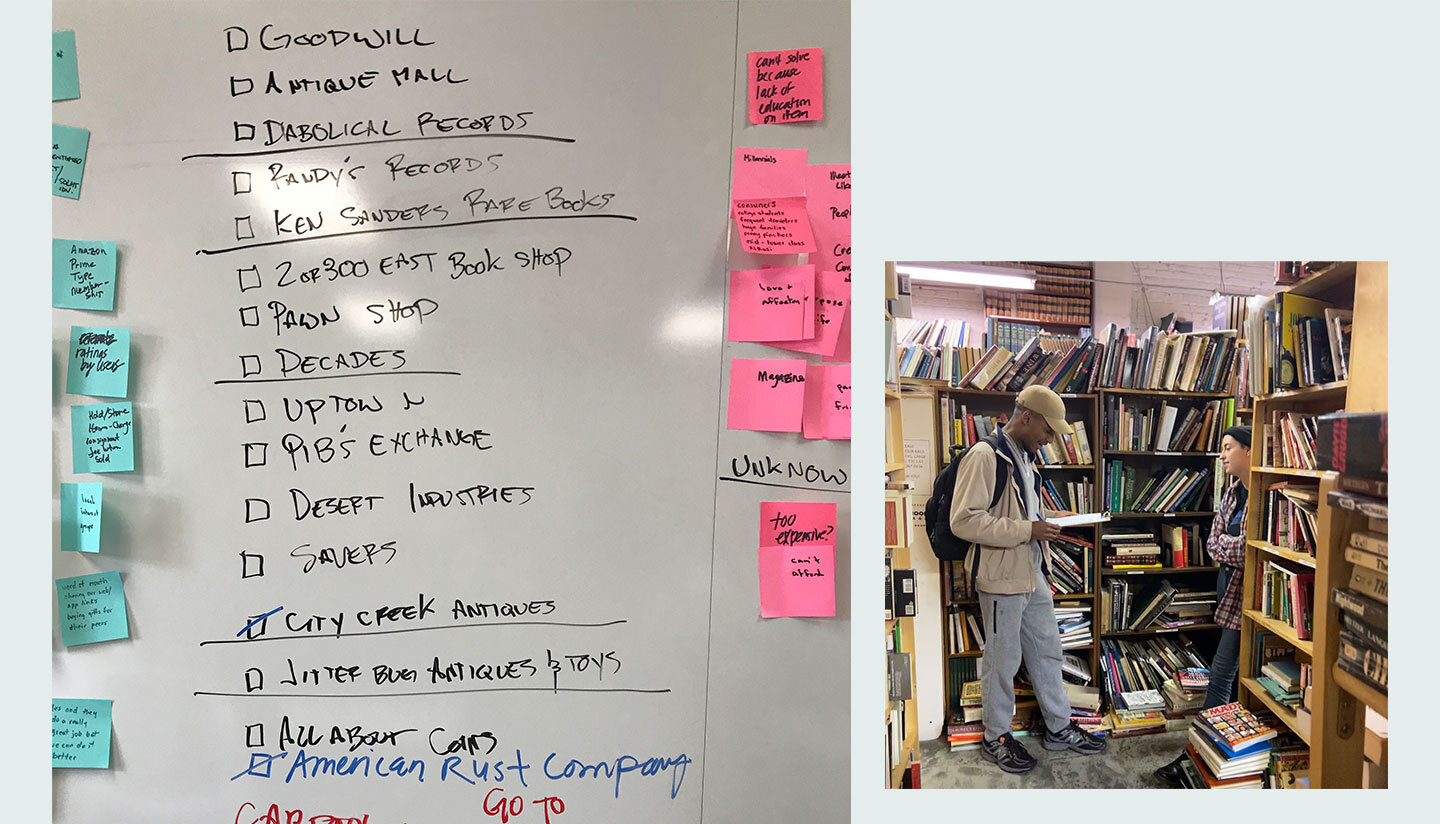 GOODWILL
ANTIQUE MALL
DIABOLICAL RECORDS
RANDY'S RECORDS
KEN SANDERS RARE BOOKS
2 OR 300 EAST BOOK SHOP
PAWN SHOP
DECADES
UPTOWN
PIB'S EXCHANGE
DESERT INDUSTRIES
SAVERS
CITY CREEK ANTIQUES
JITTER BUG ANTIQUES & TOYS
ALL ABOUT COINS
American Rust Company
GO TO
Amazon
Prime
Type
Member-
ship
ratings
by users
Hold/Store
Item - Charge
consignment
fee when
sold
local
interest
groups
word of mouth
sharing our web/
app links
buying gifts for
their peers
and they
do a really
great job but
we can do it
better
can't solve
because
lack of
education
on item
Millennials
consumers
college students
frequent travelers
huge families
penny pinchers
mid-lower class
love +
affection
Magazine
UNKNOW
too
expensive?
can't
afford
MAD